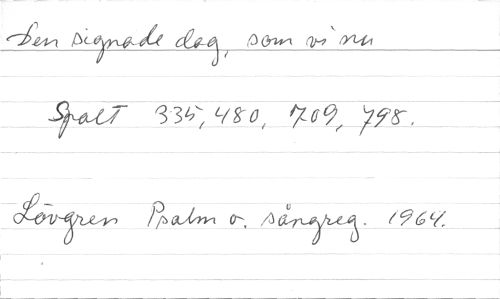 Den signade dag, som vi nu
Spalt 335, 480, 709, 798.
Lövgren Psalm o. sångreg. 1964.